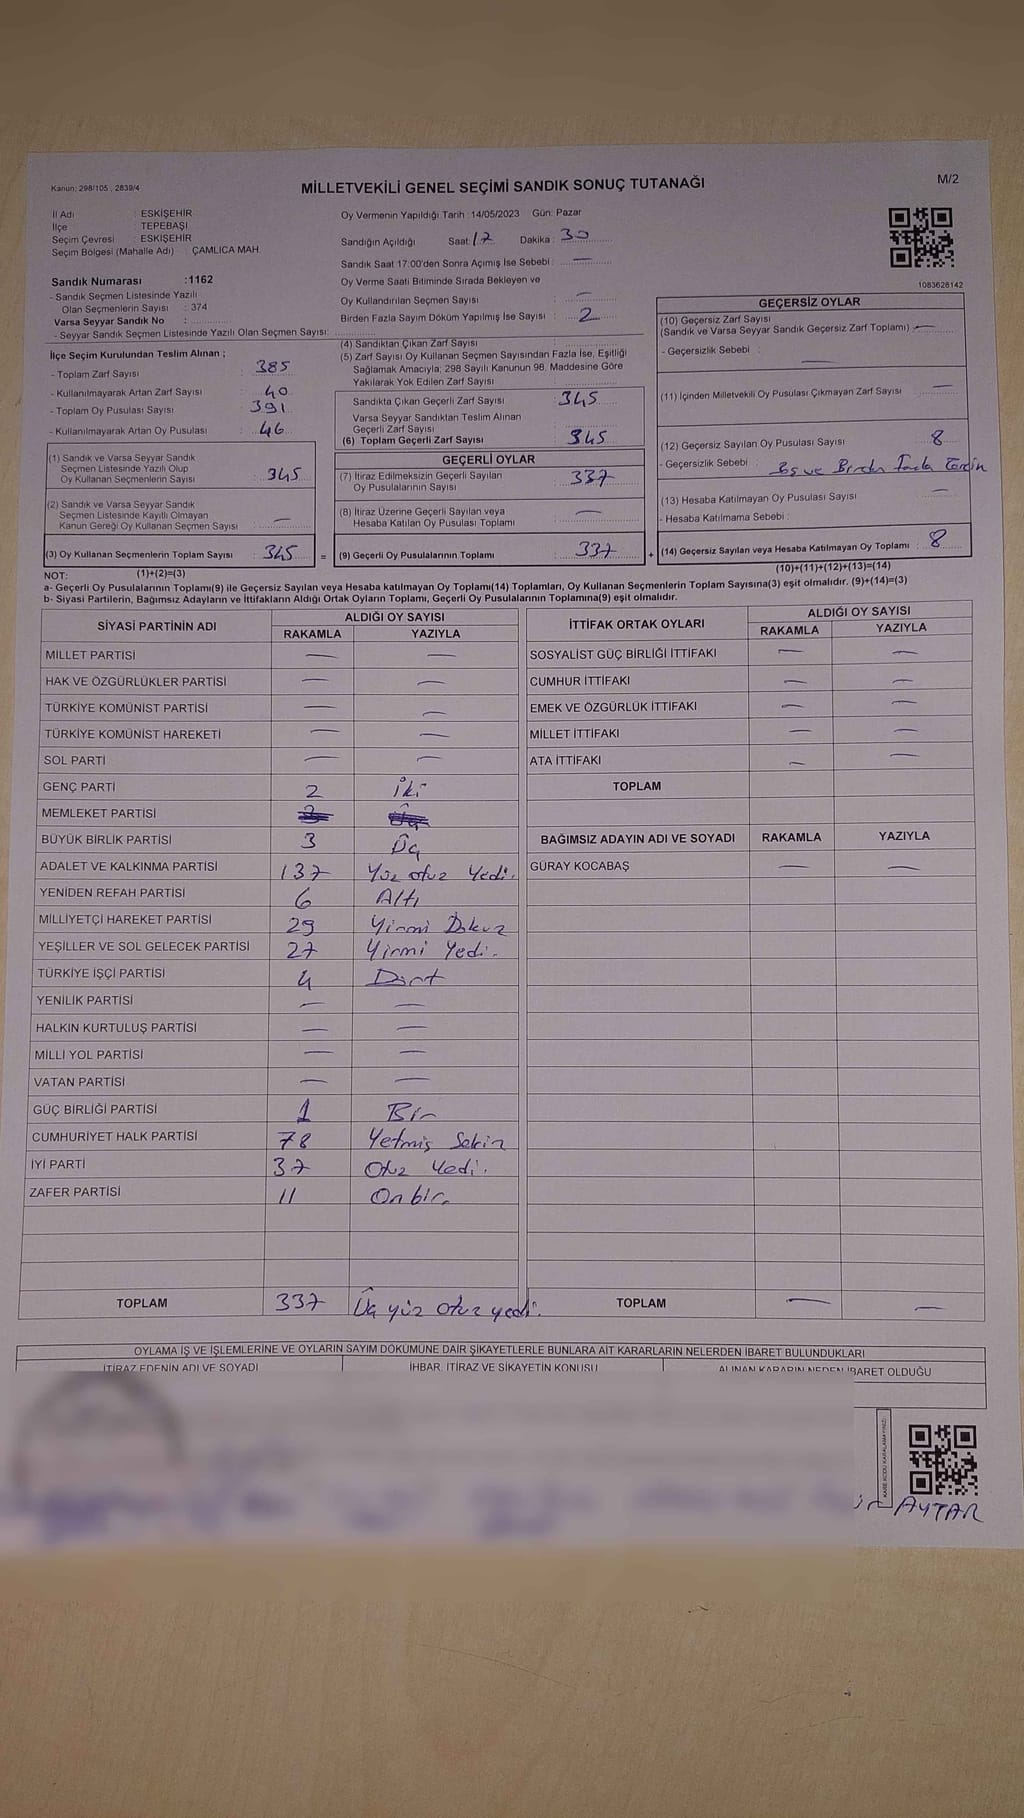 Kanun: 298/105 , 2839/4
MİLLETVEKİLİ GENEL SEÇİMİ SANDIK SONUÇ TUTANAĞI
M/2
İl Adı : ESKİŞEHİR
İlçe : TEPEBAŞI
Seçim Çevresi : ESKİŞEHİR
Seçim Bölgesi (Mahalle Adı) : ÇAMLICA MAH.
Sandık Numarası :1162
- Sandık Seçmen Listesinde Yazılı
Olan Seçmenlerin Sayısı : 374
Varsa Seyyar Sandık No :
- Seyyar Sandık Seçmen Listesinde Yazılı Olan Seçmen Sayısı:
Oy Vermenin Yapıldığı Tarih :14/05/2023 Gün: Pazar
Sandığın Açıldığı Saat 17 Dakika : 30
Sandık Saat 17:00'den Sonra Açımış İse Sebebi : —
Oy Verme Saati Bitiminde Sırada Bekleyen ve
Oy Kullandırılan Seçmen Sayısı : —
Birden Fazla Sayım Döküm Yapılmış İse Sayısı : 2
1083628142
İlçe Seçim Kurulundan Teslim Alınan ;
- Toplam Zarf Sayısı : 385
- Kullanılmayarak Artan Zarf Sayısı : 40
- Toplam Oy Pusulası Sayısı : 391
- Kullanılmayarak Artan Oy Pusulası : 46
(1) Sandık ve Varsa Seyyar Sandık
Seçmen Listesinde Yazılı Olup
Oy Kullanan Seçmenlerin Sayısı : 345
(2) Sandık ve Varsa Seyyar Sandık
Seçmen Listesinde Kayıtlı Olmayan
Kanun Gereği Oy Kullanan Seçmen Sayısı : —
(3) Oy Kullanan Seçmenlerin Toplam Sayısı : 345 =
(4) Sandıktan Çıkan Zarf Sayısı :
(5) Zarf Sayısı Oy Kullanan Seçmen Sayısından Fazla İse, Eşitliği
Sağlamak Amacıyla, 298 Sayılı Kanunun 98. Maddesine Göre
Yakılarak Yok Edilen Zarf Sayısı :
Sandıkta Çıkan Geçerli Zarf Sayısı : 345
Varsa Seyyar Sandıktan Teslim Alınan
Geçerli Zarf Sayısı :
(6) Toplam Geçerli Zarf Sayısı : 345
GEÇERLİ OYLAR
(7) İtiraz Edilmeksizin Geçerli Sayılan
Oy Pusulalarının Sayısı : 337
(8) İtiraz Üzerine Geçerli Sayılan veya
Hesaba Katılan Oy Pusulası Toplamı : —
(9) Geçerli Oy Pusulalarının Toplamı : 337 +
GEÇERSİZ OYLAR
(10) Geçersiz Zarf Sayısı
(Sandık ve Varsa Seyyar Sandık Geçersiz Zarf Toplamı) : —
- Geçersizlik Sebebi : —
(11) İçinden Milletvekili Oy Pusulası Çıkmayan Zarf Sayısı : —
(12) Geçersiz Sayılan Oy Pusulası Sayısı : 8
- Geçersizlik Sebebi : Boş ve Birden Fazla Tercih
(13) Hesaba Katılmayan Oy Pusulası Sayısı : —
- Hesaba Katılmama Sebebi :
(14) Geçersiz Sayılan veya Hesaba Katılmayan Oy Toplamı : 8
NOT: (1)+(2)=(3) (10)+(11)+(12)+(13)=(14)
a- Geçerli Oy Pusulalarının Toplamı(9) ile Geçersiz Sayılan veya Hesaba katılmayan Oy Toplamı(14) Toplamları, Oy Kullanan Seçmenlerin Toplam Sayısına(3) eşit olmalıdır. (9)+(14)=(3)
b- Siyasi Partilerin, Bağımsız Adayların ve İttifakların Aldığı Ortak Oyların Toplamı, Geçerli Oy Pusulalarının Toplamına(9) eşit olmalıdır.
SİYASİ PARTİNİN ADI ALDIĞI OY SAYISI
RAKAMLA YAZIYLA
MİLLET PARTİSİ — —
HAK VE ÖZGÜRLÜKLER PARTİSİ — —
TÜRKİYE KOMÜNİST PARTİSİ — —
TÜRKİYE KOMÜNİST HAREKETİ — —
SOL PARTİ — —
GENÇ PARTİ 2 İki
MEMLEKET PARTİSİ
BÜYÜK BİRLİK PARTİSİ 3 Üç
ADALET VE KALKINMA PARTİSİ 137 Yüz otuz Yedi.
YENİDEN REFAH PARTİSİ 6 Altı
MİLLİYETÇİ HAREKET PARTİSİ 29 Yirmi Dokuz
YEŞİLLER VE SOL GELECEK PARTİSİ 27 Yirmi Yedi.
TÜRKİYE İŞÇİ PARTİSİ 4 Dört
YENİLİK PARTİSİ — —
HALKIN KURTULUŞ PARTİSİ — —
MİLLİ YOL PARTİSİ — —
VATAN PARTİSİ — —
GÜÇ BİRLİĞİ PARTİSİ 1 Bir
CUMHURİYET HALK PARTİSİ 78 Yetmiş Sekiz
İYİ PARTİ 37 Otuz Yedi.
ZAFER PARTİSİ 11 Onbir.
TOPLAM 337 Üç yüz otuz yedi.
İTTİFAK ORTAK OYLARI ALDIĞI OY SAYISI
RAKAMLA YAZIYLA
SOSYALİST GÜÇ BİRLİĞİ İTTİFAKI — —
CUMHUR İTTİFAKI — —
EMEK VE ÖZGÜRLÜK İTTİFAKI — —
MİLLET İTTİFAKI — —
ATA İTTİFAKI — —
TOPLAM
BAĞIMSIZ ADAYIN ADI VE SOYADI RAKAMLA YAZIYLA
GÜRAY KOCABAŞ — —
TOPLAM — —
OYLAMA İŞ VE İŞLEMLERİNE VE OYLARIN SAYIM DÖKÜMÜNE DAİR ŞİKAYETLERLE BUNLARA AİT KARARLARIN NELERDEN İBARET BULUNDUKLARI
İTİRAZ EDENİN ADI VE SOYADI İHBAR, İTİRAZ VE ŞİKAYETİN KONUSU ALINAN KARARIN NEDEN İBARET OLDUĞU
KARE KODU KARALAMAYINIZ!
AYTAR